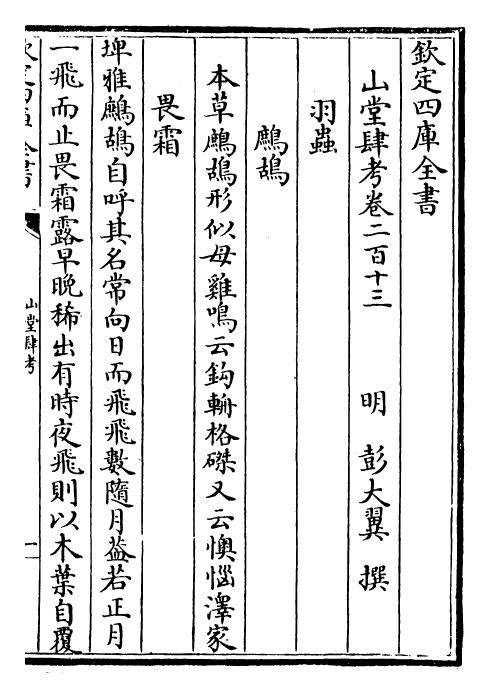 欽定四庫全書
山堂肆考卷二百十三 明 彭大翼 撰
羽蟲
鷓鴣
本草鷓鴣形似母雞鳴云鈎輈格磔又云懊惱澤家
畏霜
埤雅鷓鴣自呼其名常向日而飛飛數隨月葢若正月
一飛而止畏霜露早晚稀出有時夜飛則以木葉自覆
山堂肆考
一